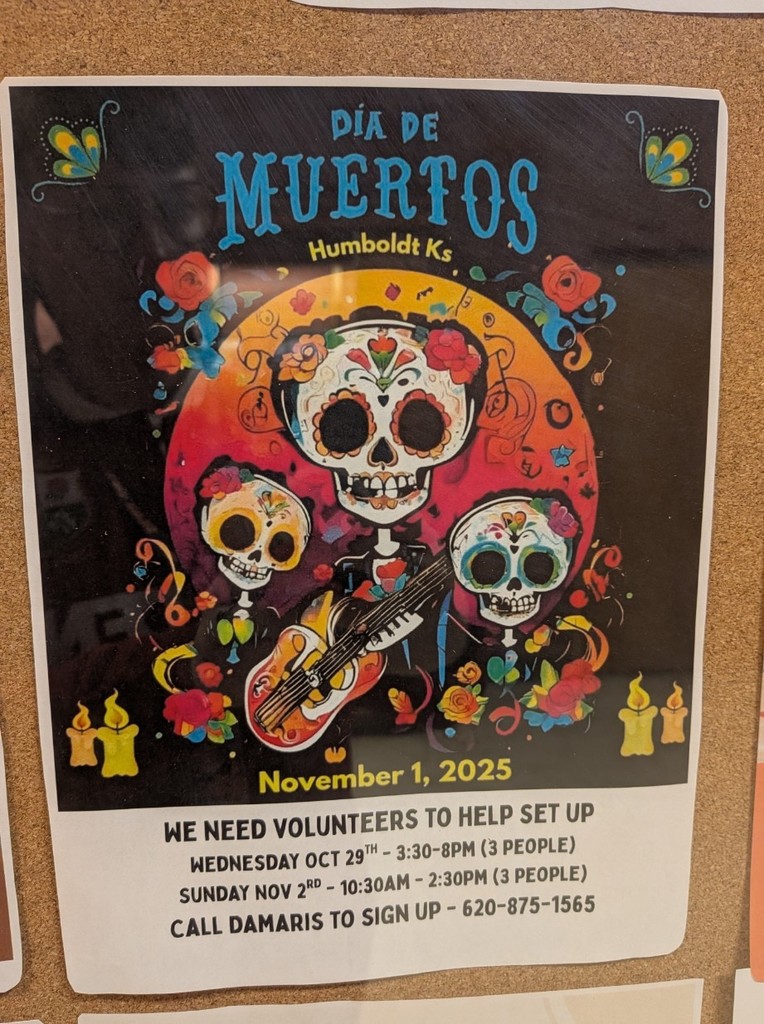 DÍA DE
MUERTOS
Humboldt Ks
November 1, 2025
WE NEED VOLUNTEERS TO HELP SET UP
WEDNESDAY OCT 29TH - 3:30-8PM (3 PEOPLE)
SUNDAY NOV 2RD - 10:30AM - 2:30PM (3 PEOPLE)
CALL DAMARIS TO SIGN UP - 620-875-1565